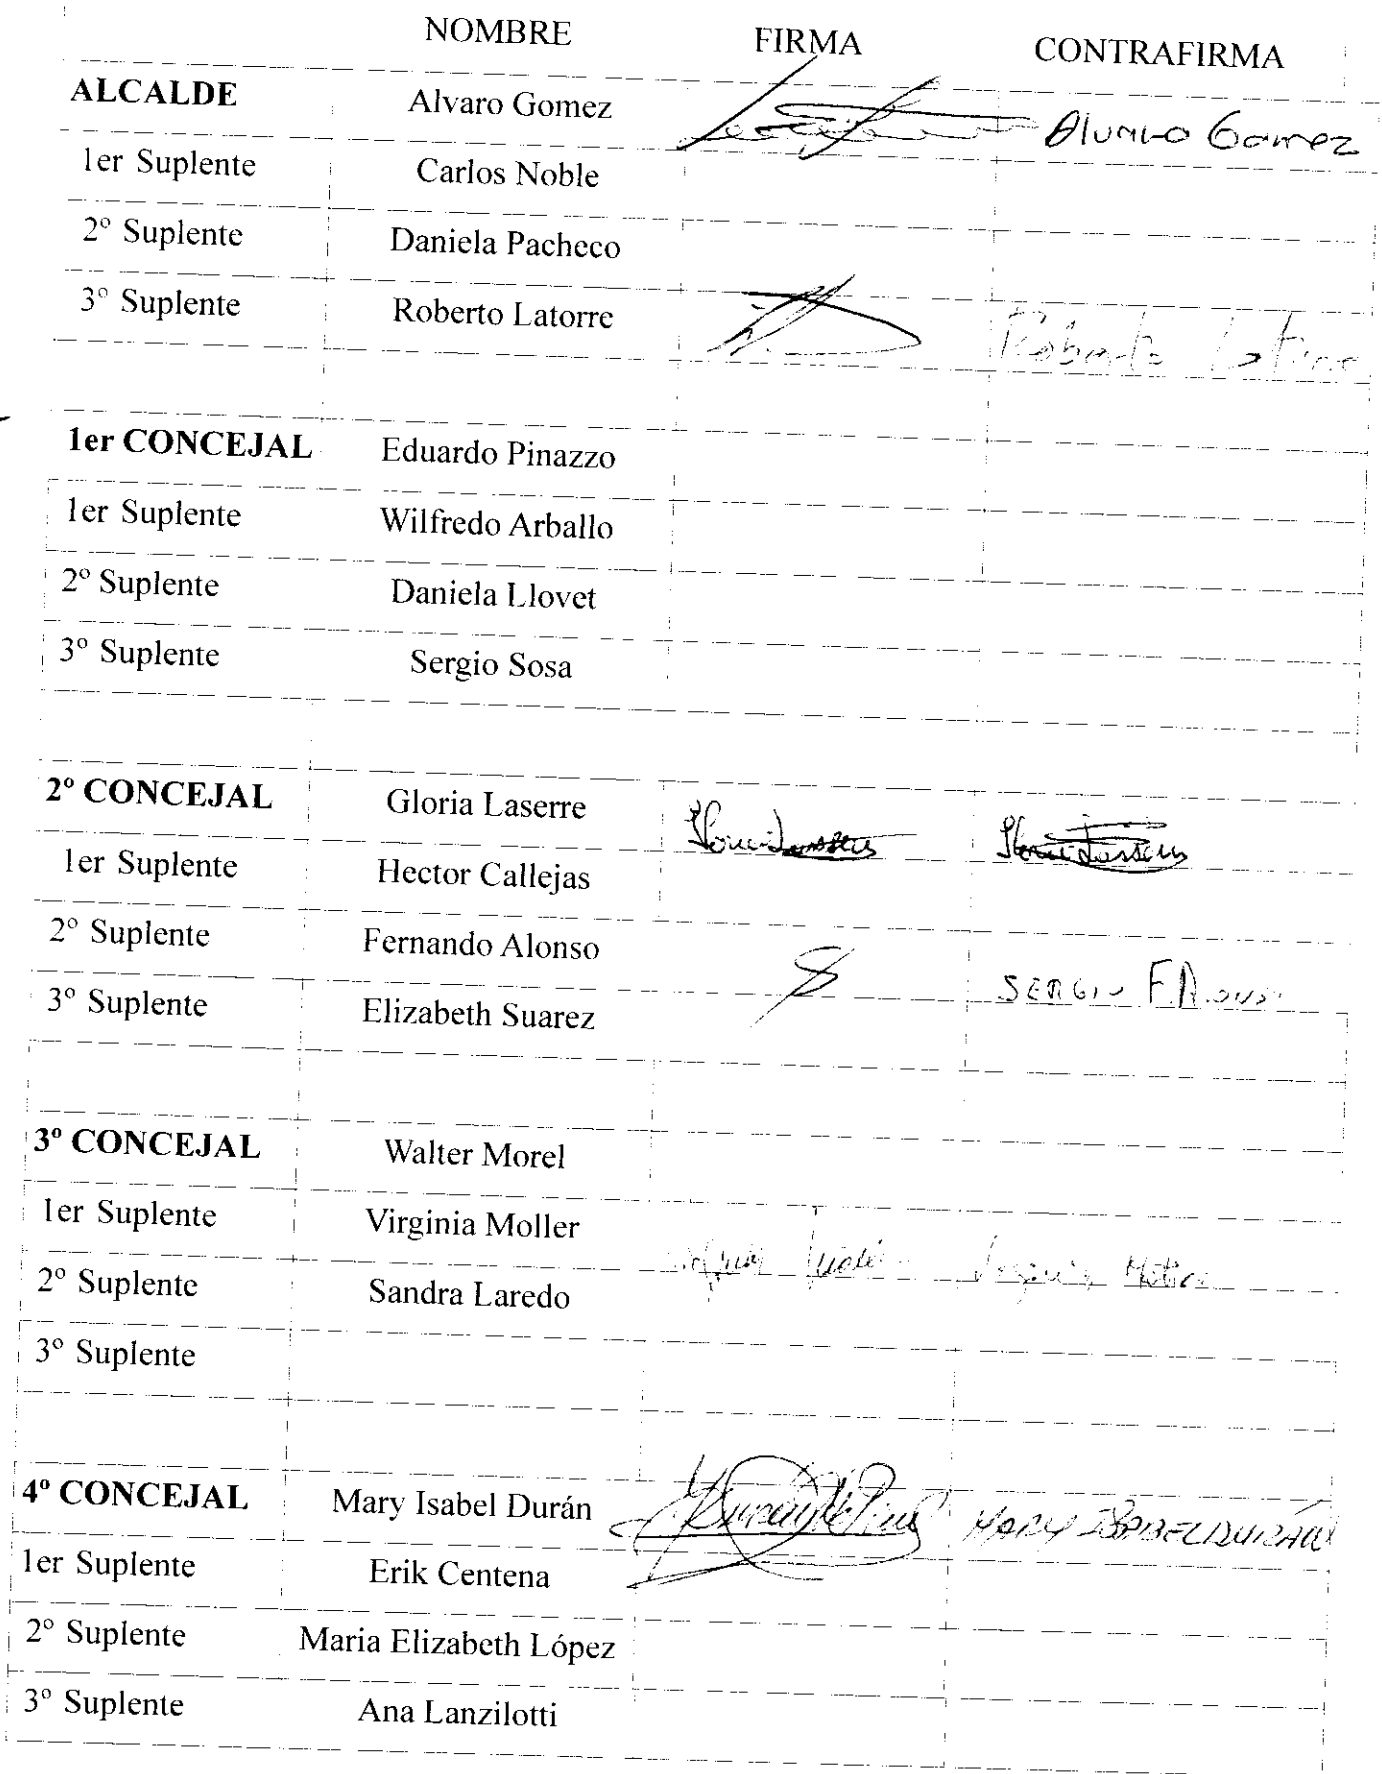 NOMBRE FIRMA CONTRAFIRMA
ALCALDE Alvaro Gomez Alvaro Gomez
1er Suplente Carlos Noble
2º Suplente Daniela Pacheco
3º Suplente Roberto Latorre Roberto Latorre
1er CONCEJAL Eduardo Pinazzo
1er Suplente Wilfredo Arballo
2º Suplente Daniela Llovet
3º Suplente Sergio Sosa
2º CONCEJAL Gloria Laserre
1er Suplente Hector Callejas
2º Suplente Fernando Alonso SERGIO F. Alonso
3º Suplente Elizabeth Suarez
3º CONCEJAL Walter Morel
1er Suplente Virginia Moller
2º Suplente Sandra Laredo
3º Suplente
4º CONCEJAL Mary Isabel Durán MARY ISABEL DURÁN
1er Suplente Erik Centena
2º Suplente Maria Elizabeth López
3º Suplente Ana Lanzilotti